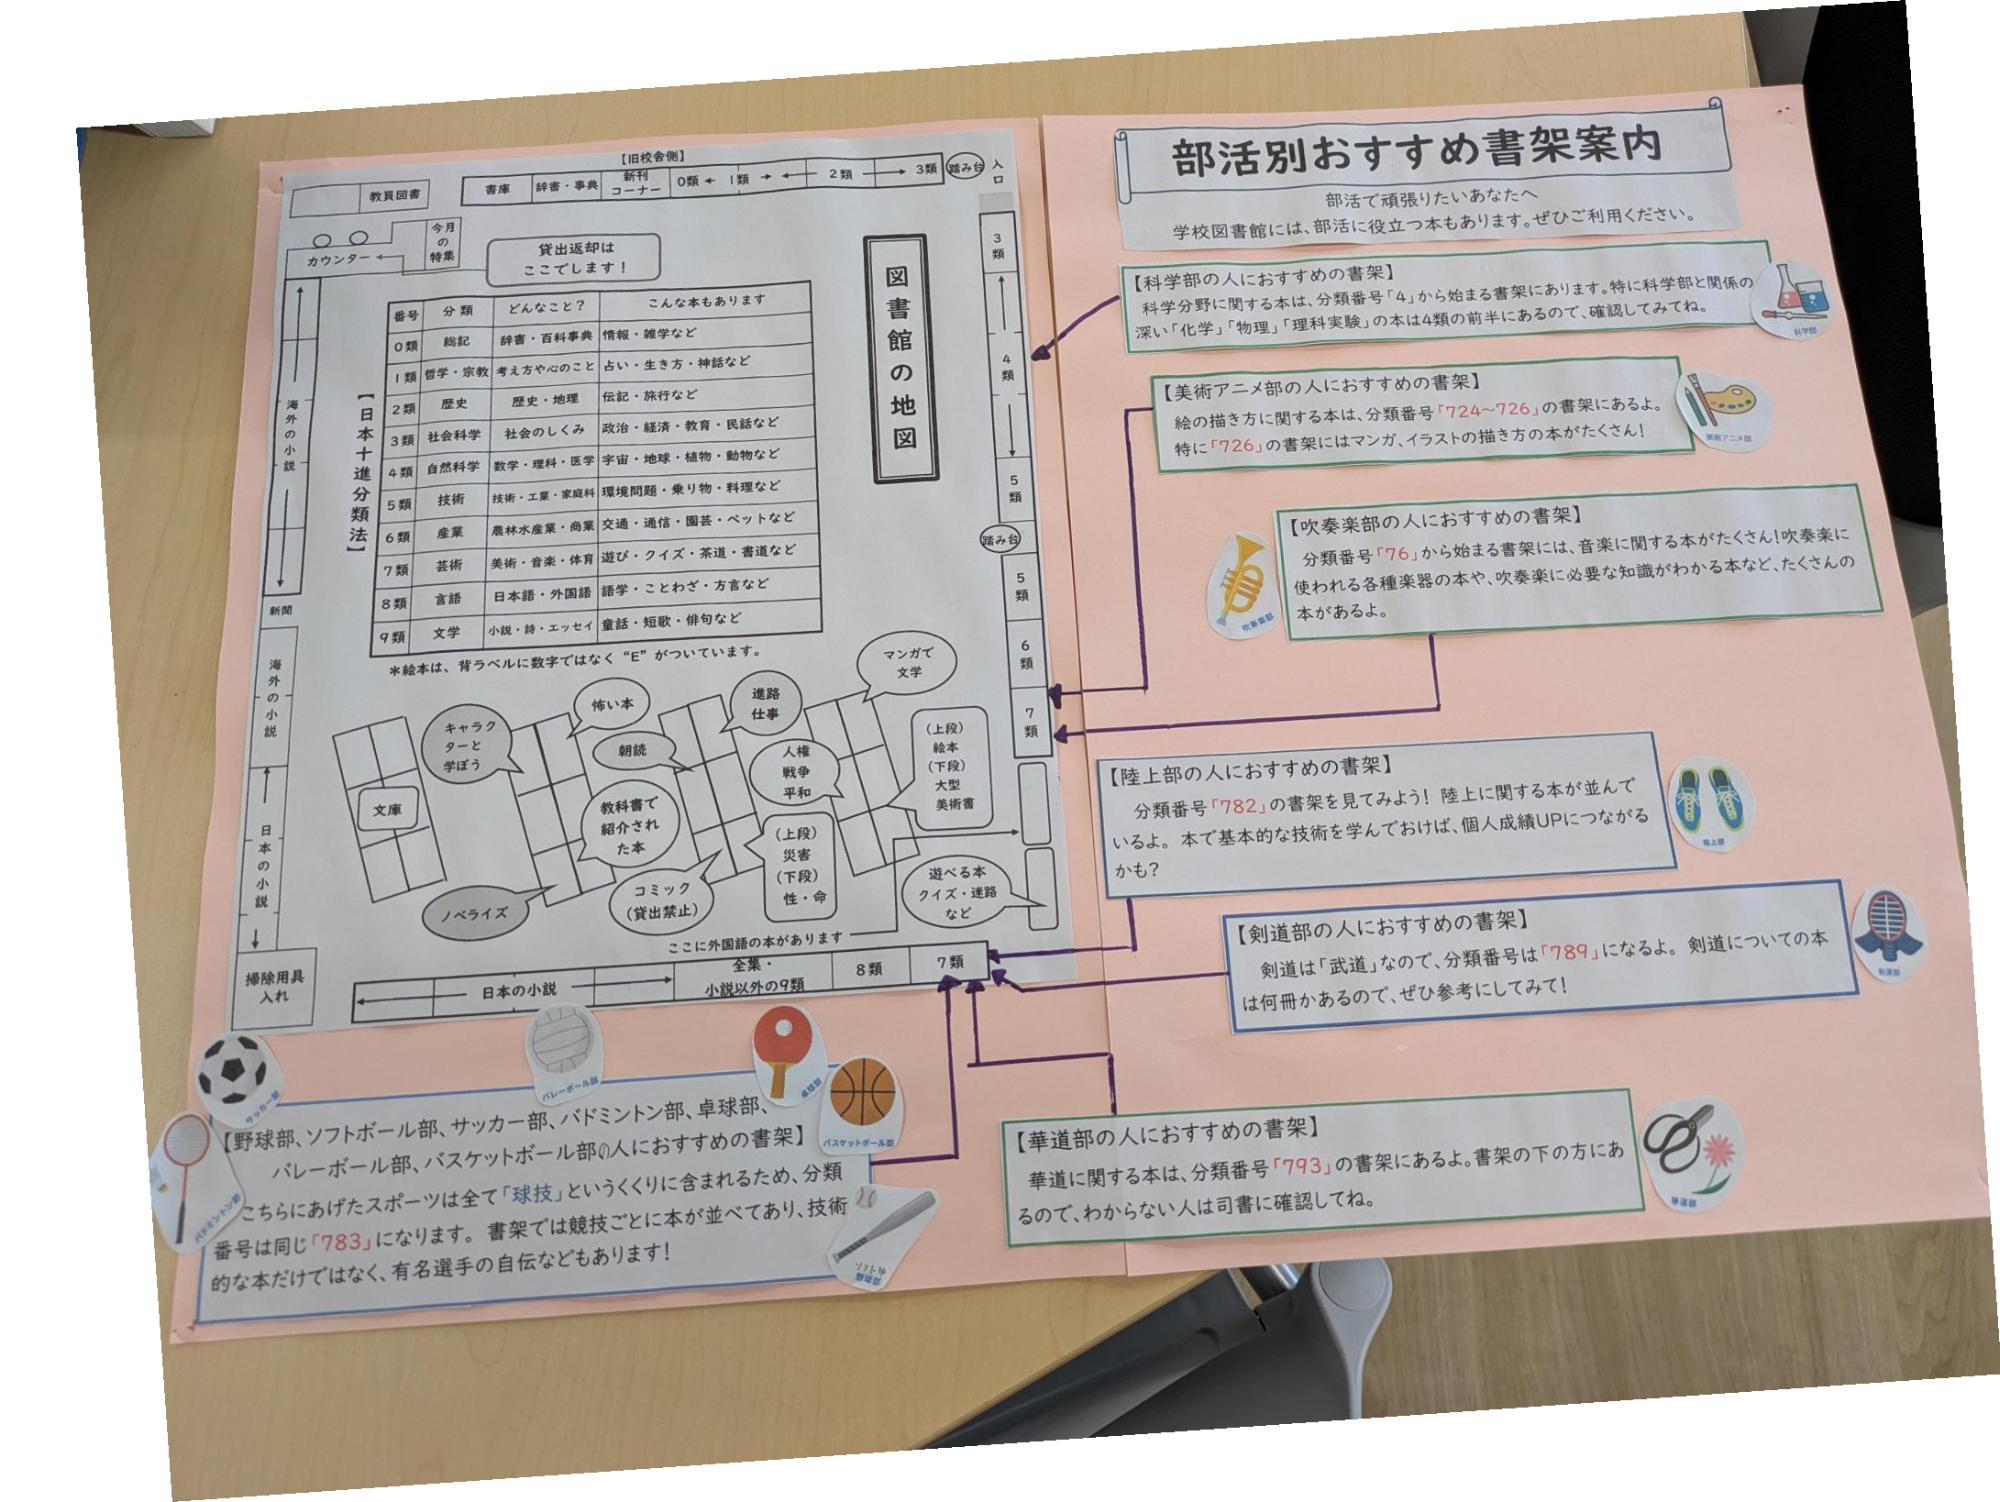 【旧校舎側】
教員図書
書庫
辞書・事典
新刊
コーナー
0類 ← 1類 → ← 2類 → 3類
踏み台
入口
今月
の
特集
カウンター
貸出返却は
ここでします!
図書館の地図
【日本十進分類法】
番号 分類 どんなこと? こんな本もあります
0類 総記 辞書・百科事典 情報・雑学など
1類 哲学・宗教 考え方や心のこと 占い・生き方・神話など
2類 歴史 歴史・地理 伝記・旅行など
3類 社会科学 社会のしくみ 政治・経済・教育・民話など
4類 自然科学 数学・理科・医学 宇宙・地球・植物・動物など
5類 技術 技術・工業・家庭科 環境問題・乗り物・料理など
6類 産業 農林水産業・商業 交通・通信・園芸・ペットなど
7類 芸術 美術・音楽・体育 遊び・クイズ・茶道・書道など
8類 言語 日本語・外国語 語学・ことわざ・方言など
9類 文学 小説・詩・エッセイ 童話・短歌・俳句など
*絵本は、背ラベルに数字ではなく“E”がついています。
海外の小説
新聞
海外の小説
日本の小説
掃除用具
入れ
3類
4類
5類
踏み台
5類
6類
7類
文庫
キャラク
ターと
学ぼう
怖い本
朝読
進路
仕事
マンガで
文学
人権
戦争
平和
(上段)
絵本
(下段)
大型
美術書
教科書で
紹介され
た本
(上段)
災害
(下段)
性・命
ノベライズ
コミック
(貸出禁止)
遊べる本
クイズ・迷路
など
ここに外国語の本があります
日本の小説
全集・
小説以外の9類
8類
7類
部活別おすすめ書架案内
部活で頑張りたいあなたへ
学校図書館には、部活に役立つ本もあります。ぜひご利用ください。
【科学部の人におすすめの書架】
科学分野に関する本は、分類番号「4」から始まる書架にあります。特に科学部と関係の
深い「化学」「物理」「理科実験」の本は4類の前半にあるので、確認してみてね。
科学部
【美術アニメ部の人におすすめの書架】
絵の描き方に関する本は、分類番号「724~726」の書架にあるよ。
特に「726」の書架にはマンガ、イラストの描き方の本がたくさん!
美術アニメ部
【吹奏楽部の人におすすめの書架】
分類番号「76」から始まる書架には、音楽に関する本がたくさん!吹奏楽に
使われる各種楽器の本や、吹奏楽に必要な知識がわかる本など、たくさんの
本があるよ。
吹奏楽部
【陸上部の人におすすめの書架】
分類番号「782」の書架を見てみよう! 陸上に関する本が並んで
いるよ。本で基本的な技術を学んでおけば、個人成績UPにつながる
かも?
陸上部
【剣道部の人におすすめの書架】
剣道は「武道」なので、分類番号は「789」になるよ。剣道についての本
は何冊かあるので、ぜひ参考にしてみて!
剣道部
【華道部の人におすすめの書架】
華道に関する本は、分類番号「793」の書架にあるよ。書架の下の方にあ
るので、わからない人は司書に確認してね。
華道部
サッカー部
バレーボール部
卓球部
バスケットボール部
バドミントン部
【野球部、ソフトボール部、サッカー部、バドミントン部、卓球部、
バレーボール部、バスケットボール部の人におすすめの書架】
こちらにあげたスポーツは全て「球技」というくくりに含まれるため、分類
番号は同じ「783」になります。書架では競技ごとに本が並べてあり、技術
的な本だけではなく、有名選手の自伝などもあります!